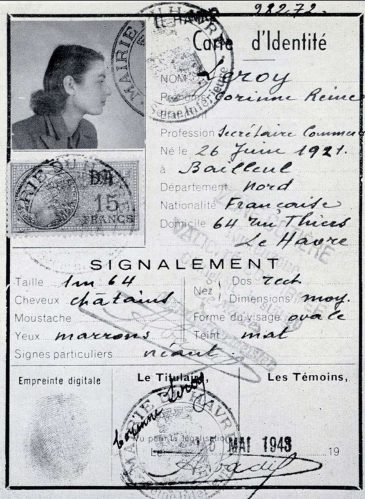 98272.
LE HAVRE
Carte d'Identité
MAIRIE DU HAVRE
Seine Inférieure
NOM Leroy
Prénoms Corinne Reine
Profession Secrétaire Commer
Né le 26 Juin 1921.
à Bailleul
Département Nord
Nationalité Francaise
Domicile 64 rue Thiers
Le Havre
15
FRANCS
SIGNALEMENT
Taille 1m 64
Cheveux châtains
Moustache
Yeux marrons
Signes particuliers néant
Nez Dos rect
Dimensions moy.
Forme du visage ovale
Teint mat
Empreinte digitale
Le Titulaire,
Les Témoins,
Corinne Leroy
MAIRIE DU HAVRE
MAI 1943
19